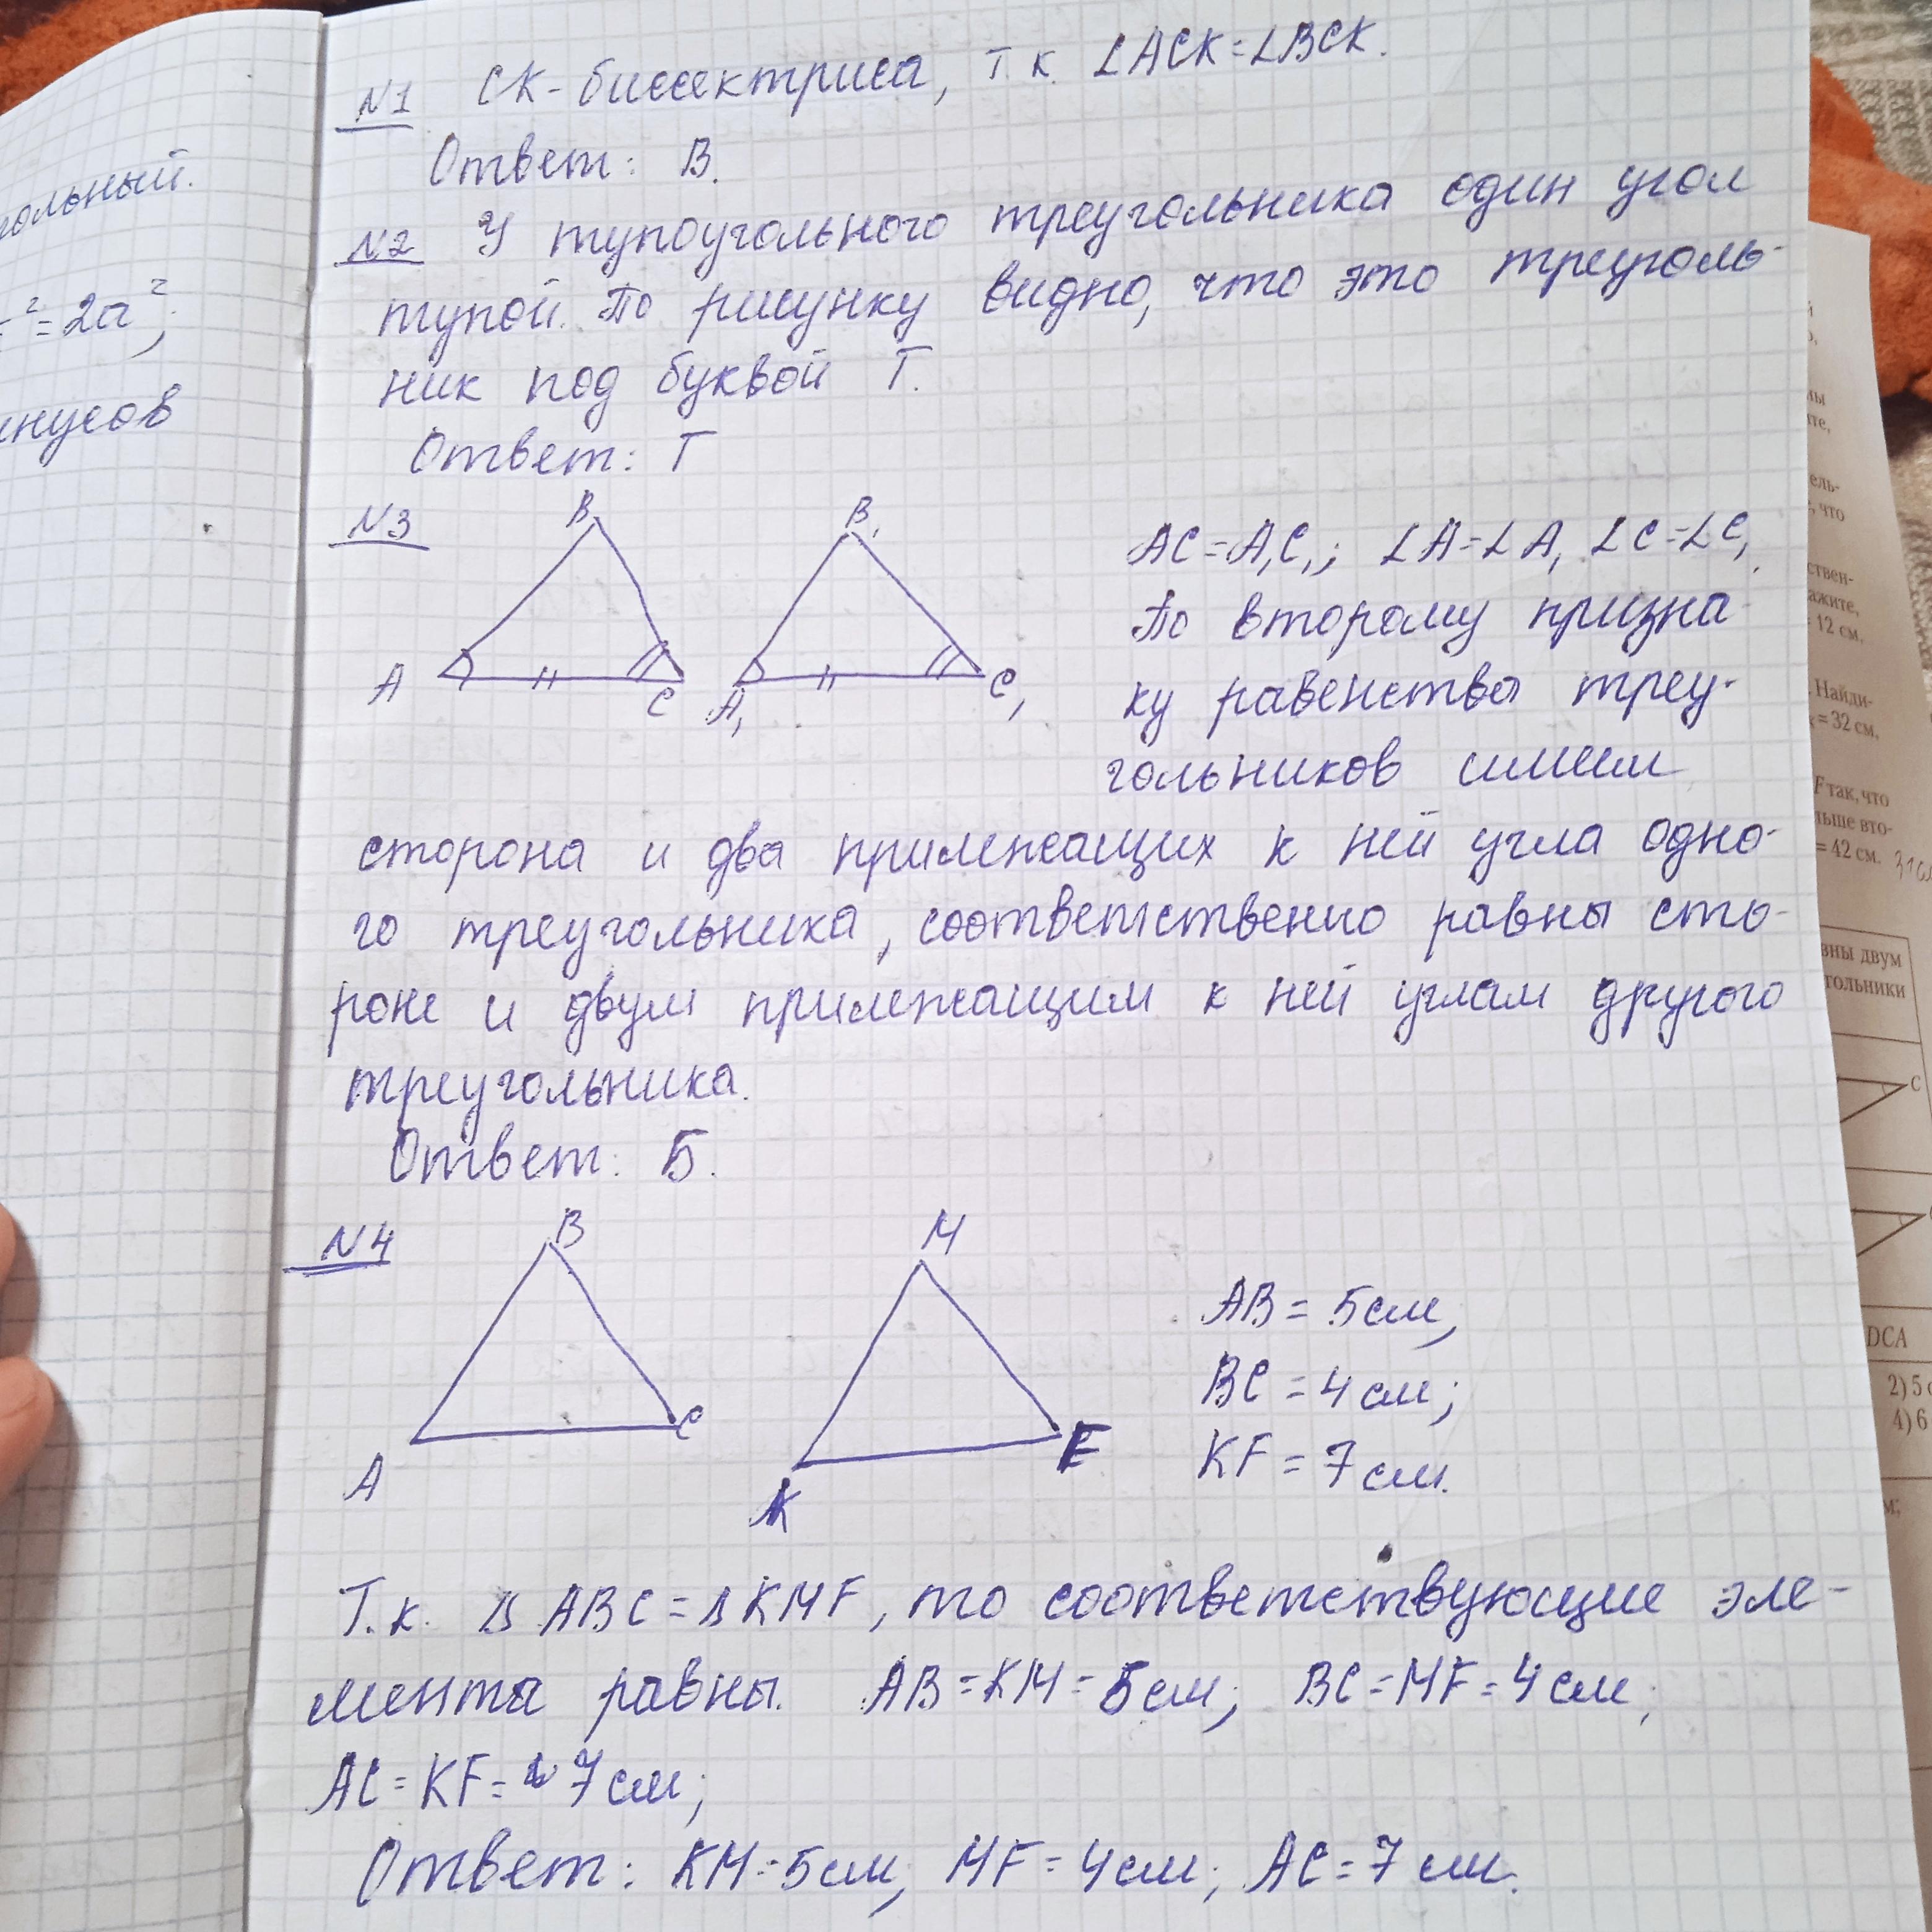 гольный.
² = 2a²;
инусов
N1 CK - биссектриса, т.к. ∠ACK = ∠BCK.
Ответ: В.
N2 У тупоугольного треугольника один угол
тупой. По рисунку видно, что это треуголь-
ник под буквой Г.
Ответ: Г
N3
B
A
C
B₁
A₁
C₁
AC = A₁C₁; ∠A = ∠A₁ ∠C = ∠C₁
По второму призна-
ку равенства треу-
гольников имеем
сторона и два прилежащих к ней угла одно-
го треугольника, соответственно равны сто-
роне и двум прилежащим к ней углам другого
треугольника.
Ответ: Б.
N4
B
A
C
M
K
F
AB = 5см,
BC = 4см;
KF = 7см.
Т.к. Δ ABC = Δ KMF, то соответствующие эле-
менты равны. AB = KM = 5см; BC = MF = 4см;
AC = KF = 7см;
Ответ: KM = 5см, MF = 4см; AC = 7см.
ель-
, что
ствен-
ажите,
12 см.
Найди-
= 32 см,
F так, что
льше вто-
= 42 см.
вны двум
гольники
C
DCA
2) 5
4) 6